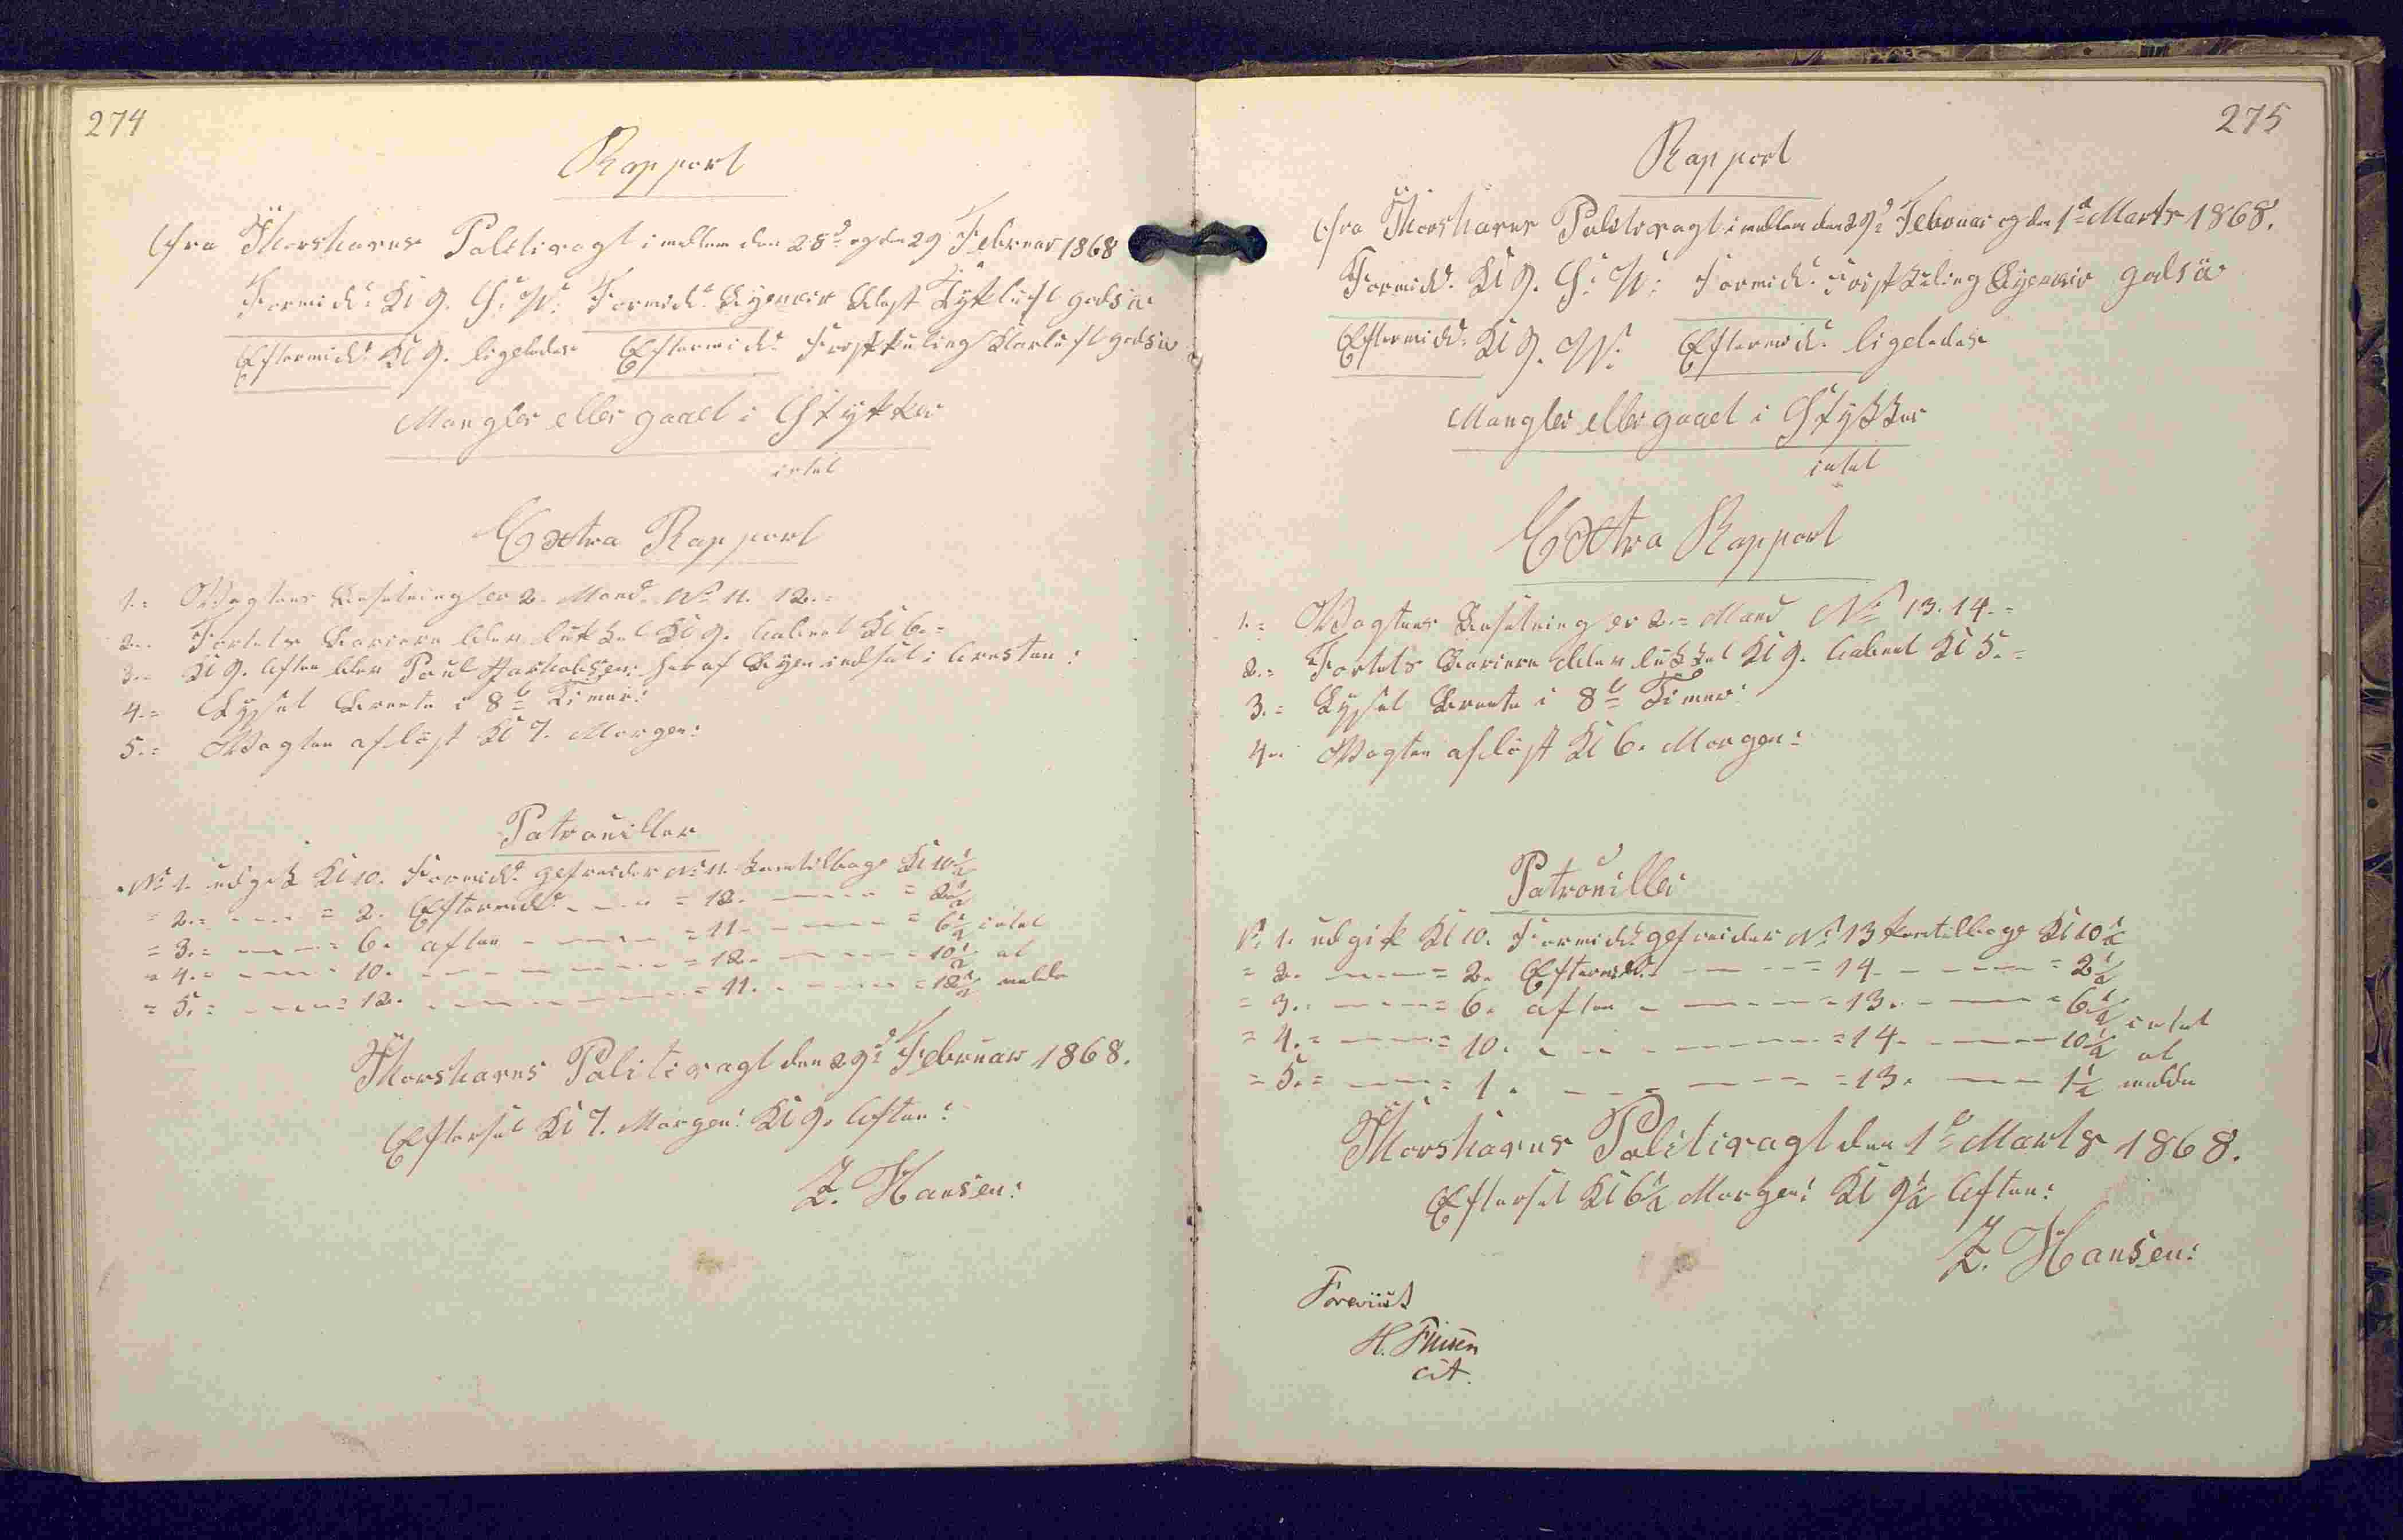 274
Rapport
fra Thorshavns Politivagt imellem den 28d og den 29 Februar 1868
Formidd: Kl 9. S: V: Formidd: Bygeveir Blæst Tÿkluft
Eftermidd: Kl 9. ligeledes Eftermidd: Frisk Kuling Klarluft
Mangler eller gaaet i Stÿkker
intet
Extra Rapport
1.= Vagtens Besætning er 2. Mand No 11. 12.=
2.= Fortets Bariere blev lukket Kl 9. Aabnet Kl 6.=
3.= Kl 9. Aften blev Poul her af Byen indsat i Aresten:
4.= Lysset Brænte i 8te Timer:
5.= Vagten aflöst Kl 7. Morgen:
Patrouiller
No 1. udgik Kl 10. Formidd: gefreider No 11. kom tilbage Kl 10½
= 2.= = 2. Eftermidd: = 12. = 2½
= 3.= = 6. aften = 11. = 6½ intet
= 4.= = 10. = 12. = 10½ at
= 5.= = 12. = 11. = 12½ melde
Thorshavns Politivagt den 29d Februar 1868.
Efterset Kl 7. Morgen: Kl 9. Aften:
Z. Hansen:
275
Rapport
fra Thorshavns Politivagt imellem den 29d Februar og den 1ste Marts 1868.
Formidd: Kl 9. S: V: Formidd: Frisk Kuling Bygeveir
Eftermidd: Kl 9. V: Eftermidd: ligeledes
Mangler eller gaaet i Stÿkker
intet
Extra Rapport
1.= Vagtens Besætning er 2.= Mand No 13. 14.=
2.= Fortets Bariere blev lukket Kl 9. Aabnet Kl 5.=
3.= Lysset Brænte i 8te Timer:
4.= Vagten aflöst Kl 6. Morgen:
Patrouiller
No 1. udgik Kl 10. Formidd: gefreider No 13 kom tilbage Kl 10½
= 2. = 2. Eftermidd: = 14. = 2½
= 3. = 6. aften = 13. = 6½ intet
= 4. = 10. = 14. 10½ at
= 5. = 1. = 13. 1½ melde
Thorshavns Politivagt den 1ste Marts 1868.
Efterset Kl 6½ Morgen: Kl 9½ Aften:
Z. Hansen:
Foreviist
H.
cst.